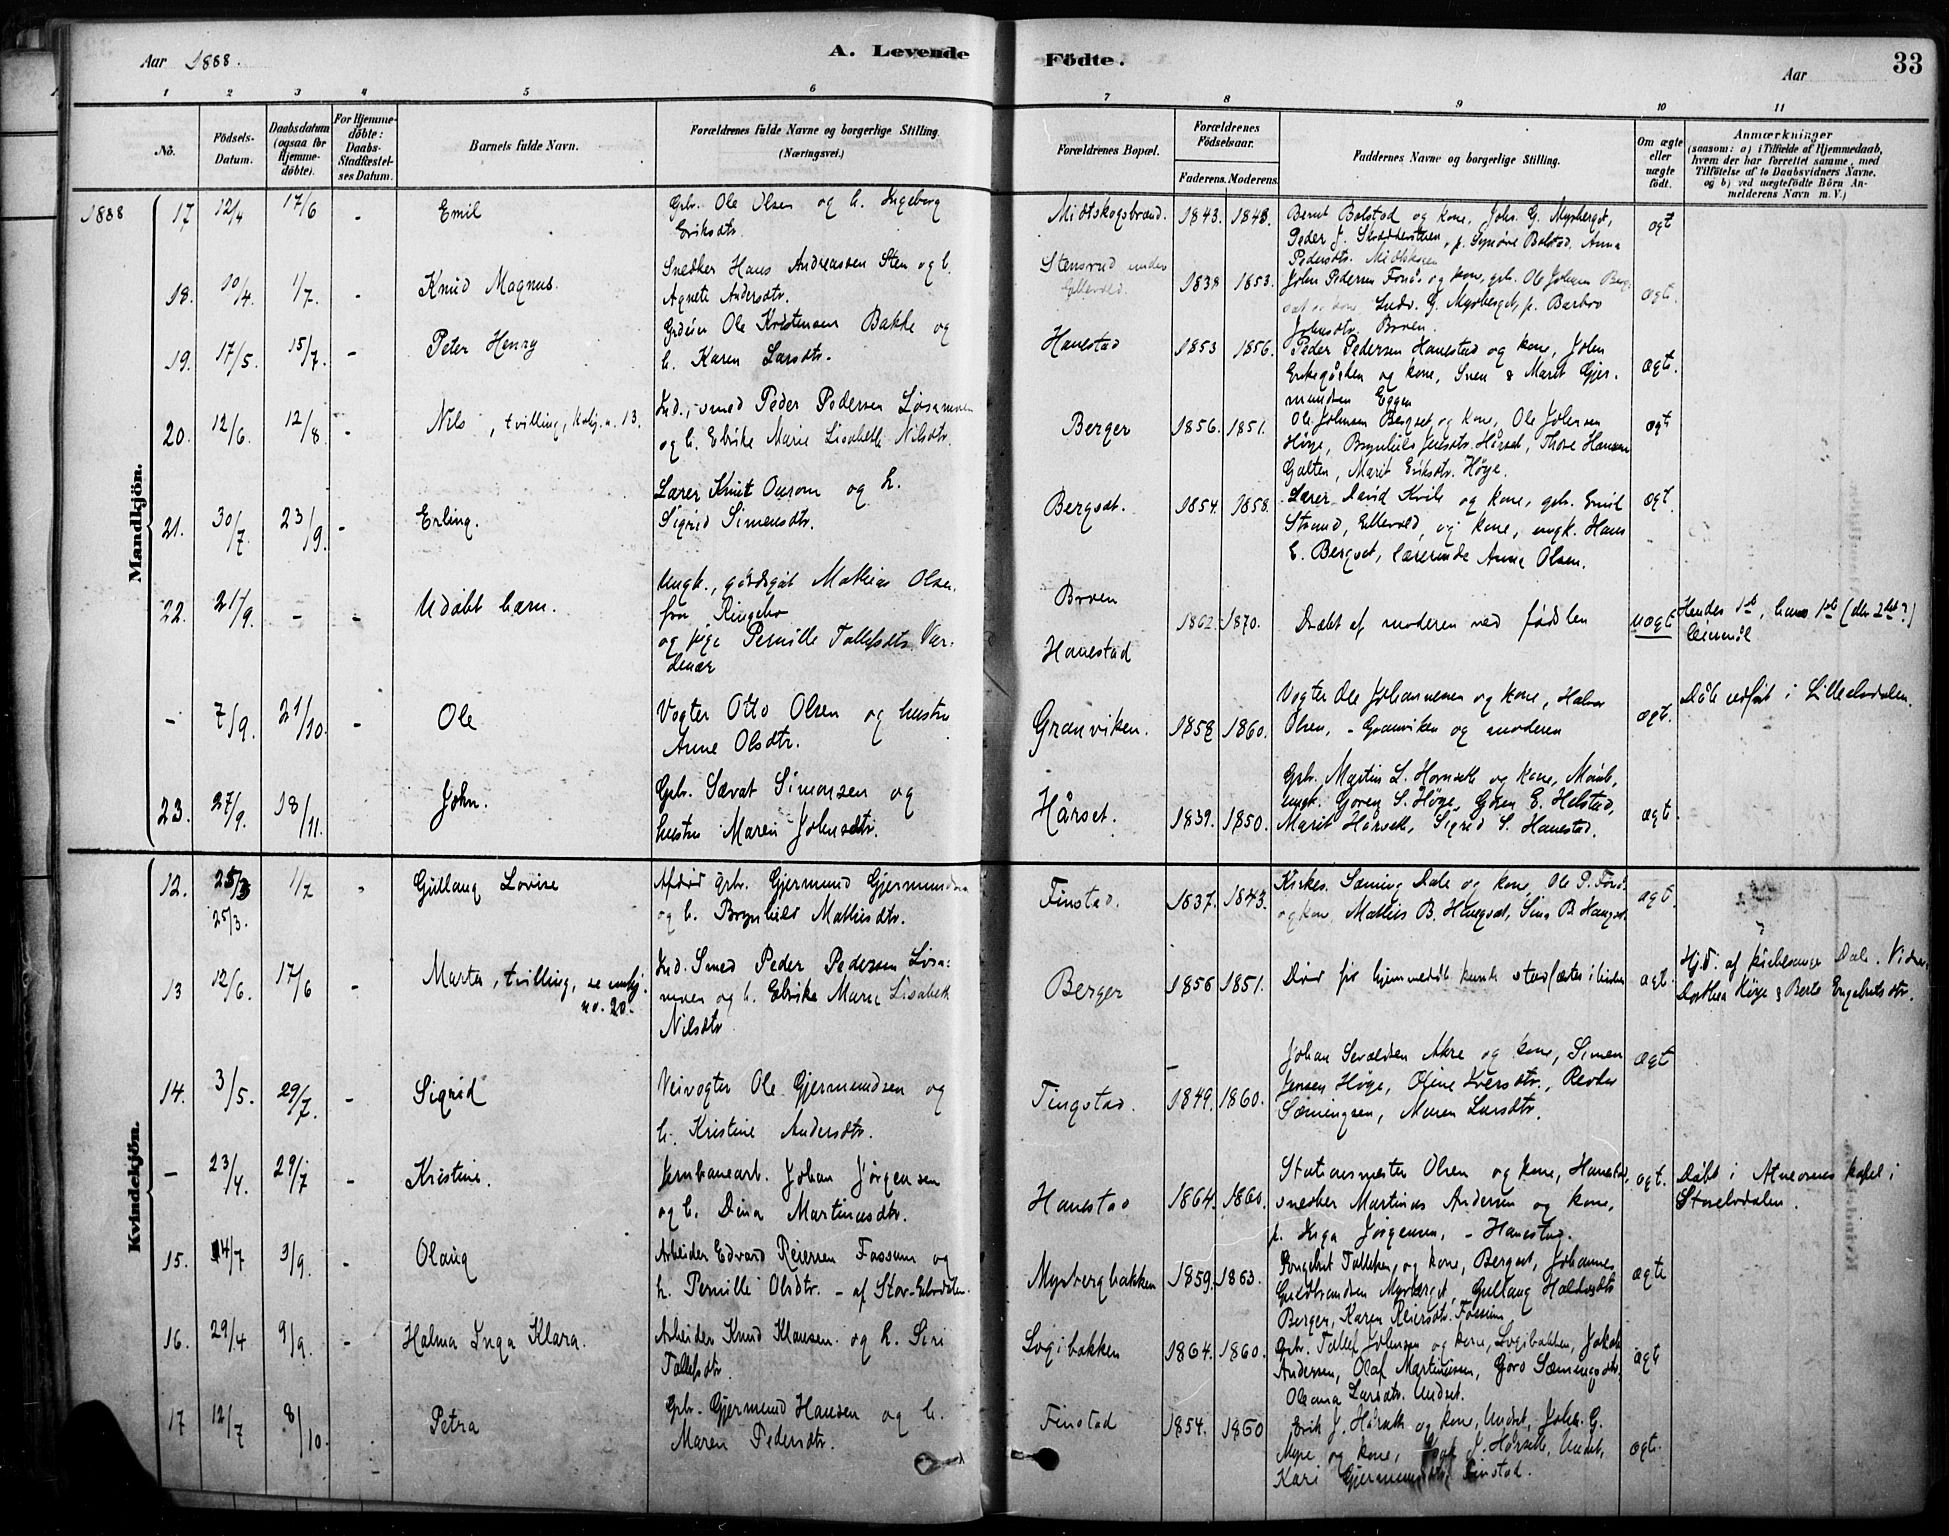 Aar 1888.
A. Levende
Födte.
Aar
33
1 2 3 4 5 6
7 8 9 10 11
Nô. Födsels-Datum. Daabsdatum (ogsaa for Hjemmedöbte). For Hjemmedöbte: Daabs-Stadfæstelses Datum. Barnets fulde Navn. Forældrenes fulde Navne og borgerlige Stilling. (Næringsvei.)
Forældrenes Bopæl. Forældrenes Födselsaar. Faderens. Moderens. Faddernes Navne og borgerlige Stilling. Om ægte eller uægte födt. Anmærkninger (saasom: a) i Tilfælde af Hjemmedaab, hvem der har forrettet samme, med Tilföielse af to Daabsvidners Navne, og b) ved uægtefödte Börn Anmelderens Navn m. V.)
Mandkjön.
1888 17 12/4 17/6 - Emil
Gbr. Ole Olsen og h. Ingeborg
Eriksdtr.
Midtskogsbrænd. 1843. 1848.
Bernt Bolstad og kone, Johs. G. Mysberget,
Peder J.
p. Synöve Bolstad, Anna
Pedersdtr.
ægt
18. 10/4 1/7. - Knud Magnus.
Snedker Hans Andreassen Sten og h.
Agnete Andersdtr.
Stensrud under
1838 1853.
John Pedersen og kone, gbr. Ole Johsen
G. Mysberget, p. Barbro
Johnsdtr. Broen.
ægt.
19. 17/5. 15/7. - Peter Henry
Ole Kristensen Bakke og
h. Karen Larsdtr.
Hanestad 1853 1856.
Peder Pedersen Hanestad og kone, John
og kone, Sven & Marit Gjer-
mundsen Eggen
ægte.
20. 12/6. 12/8 - Nils, tvilling,
13.
Ind., smed Peder Pedersen
og h. Elrike Marie Lisabeth Nilsdtr.
Berger 1856. 1851.
Ole Johnsen Bergset og kone, Ole Johnsen
Höye, Brynhild Hårset, Thore Hansen
Galten, Marit Eriksdtr. Höye.
ægt
21. 30/7 23/9. - Erling.
Lærer Knut og h.
Sigrid Simensdtr.
Bergset. 1854. 1858.
Lærer David Kvile og kone, gbr. Emil
Strand, Ellevold, og kone, ungk. Hans
E. Bergset, lærerinde Anna Olsen.
ægt.
22. 21/9. - - Udöbt barn.
Ungk., gårdsgut Mathias Olsen
fra Ringebu
og pige Pernille Tollefsdtr.
Broen
Hanestad
1862. 1870.
Dræbt af moderen ved födslen
uægt
Hendes 1ste, hans 1ste (eller 2det?)
leiermål
- 7/9. 21/10. - Ole
Vogter Otto Olsen og hustru
Anne Olsdtr.
Granviken. 1858 1860.
Vogter Ole Johannesen og kone, Halvor
Olsen, - Granviken og moderen
ægt.
Dåb udfört i Lilleelvdalen.
23. 27/9. 18/11. John.
Gbr. Sævat Simonsen og
hustru Maren Johnsdtr.
Hårset. 1839. 1850.
Gbr. Martin L. Hornseth og kone,
ungk. Goren S. Höye, Goren E. Helstad,
Marit Hårseth, Sigrid S. Hanestad.
ægt
Kvindekjön.
12. 25/3 1/7 Gullaug Lovise
25/3.
gbr. Gjermund Gjermundsen
og h. Brynhild Mathisdtr.
Finstad. 1837. 1843.
Kirkes. Sæming Dale og kone, Ole P.
og kone, Mathias B. Haugset, Sina B. Haugset.
ægt.
13 12/6. 17/6 - Marta, tvilling, se
no. 20.
Ind. Smed Peder Pedersen
og h. Elrike Marie Lisabeth
Nilsdtr.
Berger 1856 1851.
Död för hjemmedåb kunde stadfæstes i kirken
ægt.
Hj.d. af kirkesanger Dale. Vidner
Dorthea Höye & Berte Engebretsdtr.
14. 3/5. 29/7. - Sigrid
Veivogter Ole Gjermundsen og
h. Kristine Andersdtr.
Tingstad. 1849. 1860.
Johan Sevaldsen Akre og kone, Simen
Jensen Höye, Ofine Iversdtr., Reidar
Sæmingsen, Maren Larsdtr.
ægt
- 23/4. 29/7 - Kristine.
Jernbanearb. Johan Jörgensen
og h. Dina Martinusdtr.
Hanestad 1864. 1860.
Stationsmester Olsen og kone, Hanestad,
snedker Martinus Andersen og kone,
p. Inga Jörgensen, - Hanestad.
ægt.
Döbt i Atneosens kapel i
Storelvdalen.
15. 14/7 3/9. - Olaug
Arbeider Edvard Reiersen Fossum og
h. Pernille Olsdtr. - af Stor-Elvdalen.
Mysbergbakken 1859. 1863.
Engebret Tollefsen, og kone, Bergset, Johannes
Guldbrandsen Mysberget, Gullaug Halvorsdtr.
Berger, Karen Reiersdtr. Fossum
ægte
16. 29/4 9/9. - Halma Inga Klara.
Arbeider Knud Klausen og h. Siri
Tollefsdtr.
Svgibakken 1864. 1860.
Gbr. Tollef Johnsen og kone, Jakob
Andersen, Olaf Martinusen, Goro Sæmingsdtr.
Oleana Larsdtr. Undset.
ægte
17 12/7 8/10. Petra
Gbr. Gjermund Hansen og h.
Maren Pedersdtr.
Finstad 1854. 1860
Erik J. Hårseth og kone, Undset, Johs. G.
Myre og kone, J. Hårseth, Undset,
Kari Gjermundsdtr. Finstad.
ægte.